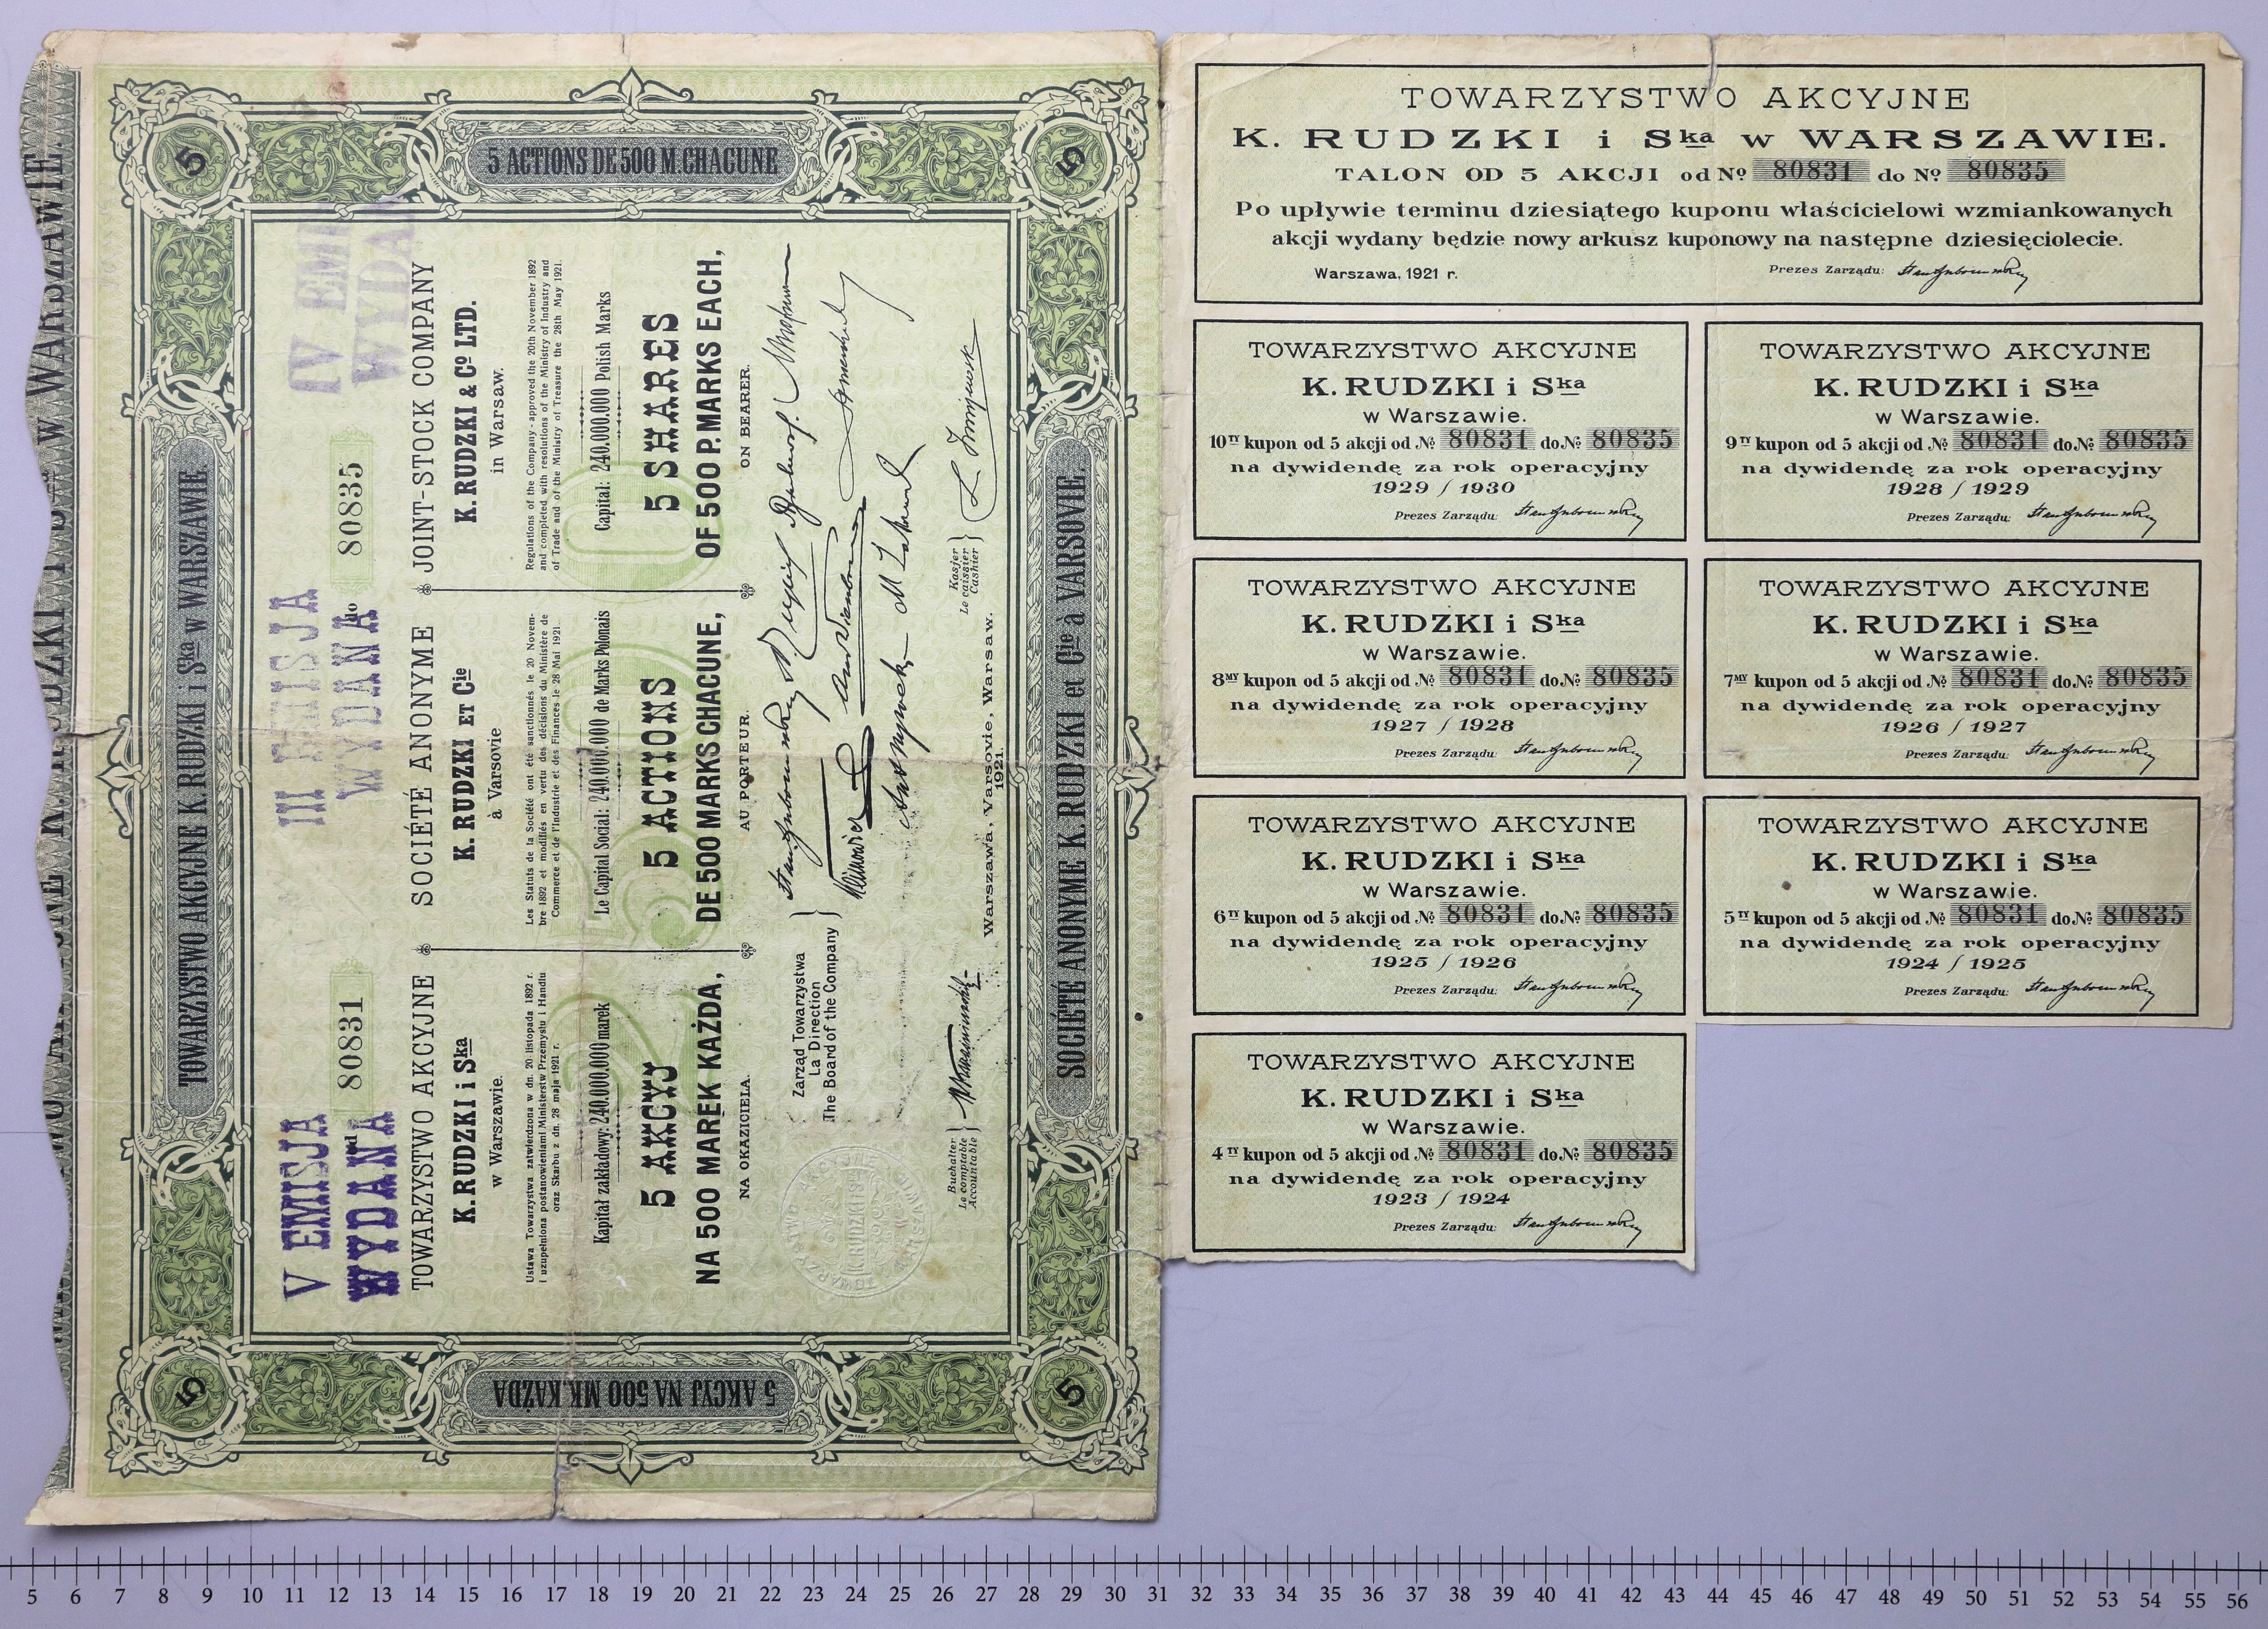 TOWARZYSTWO AKCYJNE K. RUDZKI i Ska w WARSZAWIE.
5 ACTIONS DE 500 M. CHACUNE
5
5
5
5
TOWARZYSTWO AKCYJNE K. RUDZKI i Ska w WARSZAWIE.
V EMISJA
WYDANA
III EMISJA
WYDANA
IV EMI
WYDA
od 80831 do 80835
TOWARZYSTWO AKCYJNE
K. RUDZKI i Ska
w Warszawie.
Ustawa Towarzystwa zatwierdzona w dn. 20. listopada 1892 r.
i uzupełniona postanowieniami Ministerstw Przemysłu i Handlu
oraz Skarbu z dn. 28 maja 1921 r.
Kapitał zakładowy: 240.000.000 marek
5 AKCYJ
NA 500 MAREK KAŻDA,
NA OKAZICIELA.
SOCIÉTÉ ANONYME
K. RUDZKI ET Cie
à Varsovie
Les Statuts de la Société ont été sanctionnés le 20 Novem-
bre 1892 et modifiés en vertu des décisions du Ministère de
Commerce et de l'Industrie et des Finances le 28 Mai 1921.
Le Capital Social: 240.000.000 de Marks Polonais
5 ACTIONS
DE 500 MARKS CHACUNE,
AU PORTEUR.
JOINT-STOCK COMPANY
K. RUDZKI & Co LTD.
in Warsaw.
Regulations of the Company - approved the 20th November 1892
and completed with resolutions of the Ministry of Industry and
of Trade and of the Ministry of Treasure the 28th May 1921.
Capital: 240.000.000 Polish Marks
5 SHARES
OF 500 P. MARKS EACH,
ON BEARER.
2500
Zarząd Towarzystwa
La Direction
The Board of the Company
Buchalter
Le comptable
Accountable
Kasjer
Le caissier
Cashier
Warszawa, Varsovie, Warsaw.
1921.
SOCIÉTÉ ANONYME K. RUDZKI et Cie à VARSOVIE.
5 AKCYJ NA 500 MK. KAŻDA
TOWARZYSTWO AKCYJNE
K. RUDZKI i Ska w WARSZAWIE.
TALON OD 5 AKCJI od No 80831 do No 80835
Po upływie terminu dziesiątego kuponu właścicielowi wzmiankowanych
akcji wydany będzie nowy arkusz kuponowy na następne dziesięciolecie.
Warszawa, 1921 r. Prezes Zarządu:
TOWARZYSTWO AKCYJNE
K. RUDZKI i Ska
w Warszawie.
10TY kupon od 5 akcji od No 80831 do No 80835
na dywidendę za rok operacyjny
1929 / 1930
Prezes Zarządu:
TOWARZYSTWO AKCYJNE
K. RUDZKI i Ska
w Warszawie.
9TY kupon od 5 akcji od No 80831 do No 80835
na dywidendę za rok operacyjny
1928 / 1929
Prezes Zarządu:
TOWARZYSTWO AKCYJNE
K. RUDZKI i Ska
w Warszawie.
8MY kupon od 5 akcji od No 80831 do No 80835
na dywidendę za rok operacyjny
1927 / 1928
Prezes Zarządu:
TOWARZYSTWO AKCYJNE
K. RUDZKI i Ska
w Warszawie.
7MY kupon od 5 akcji od No 80831 do No 80835
na dywidendę za rok operacyjny
1926 / 1927
Prezes Zarządu:
TOWARZYSTWO AKCYJNE
K. RUDZKI i Ska
w Warszawie.
6TY kupon od 5 akcji od No 80831 do No 80835
na dywidendę za rok operacyjny
1925 / 1926
Prezes Zarządu:
TOWARZYSTWO AKCYJNE
K. RUDZKI i Ska
w Warszawie.
5TY kupon od 5 akcji od No 80831 do No 80835
na dywidendę za rok operacyjny
1924 / 1925
Prezes Zarządu:
TOWARZYSTWO AKCYJNE
K. RUDZKI i Ska
w Warszawie.
4TY kupon od 5 akcji od No 80831 do No 80835
na dywidendę za rok operacyjny
1923 / 1924
Prezes Zarządu:
5 6 7 8 9 10 11 12 13 14 15 16 17 18 19 20 21 22 23 24 25 26 27 28 29 30 31 32 33 34 35 36 37 38 39 40 41 42 43 44 45 46 47 48 49 50 51 52 53 54 55 56